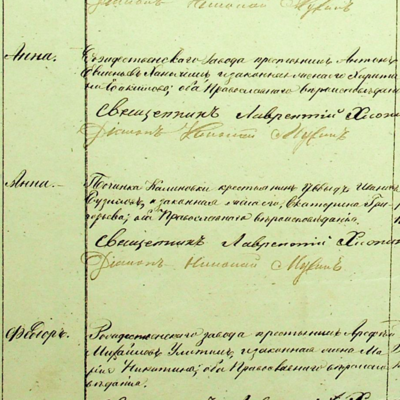 Діаконъ Николай Мухинъ
Анна. Рождественскаго завода крестьянинъ Антонъ
законная жена его Харитина
оба Православнаго вѣроисповѣданія
Священникъ Лаврентій
Діаконъ Николай Мухинъ
Анна. Починка Калиновки крестьянинъ Иванъ
и законная жена его, Екатерина Гри-
горьева; оба Православнаго вѣроисповѣданія.
Священникъ Лаврентій
Діаконъ Николай Мухинъ
Ѳеодоръ. Рождественскаго завода крестьянинъ
Михайловъ и законная жена Ма-
рія Никитина; оба Православнаго вѣроиспо-
вѣданія.